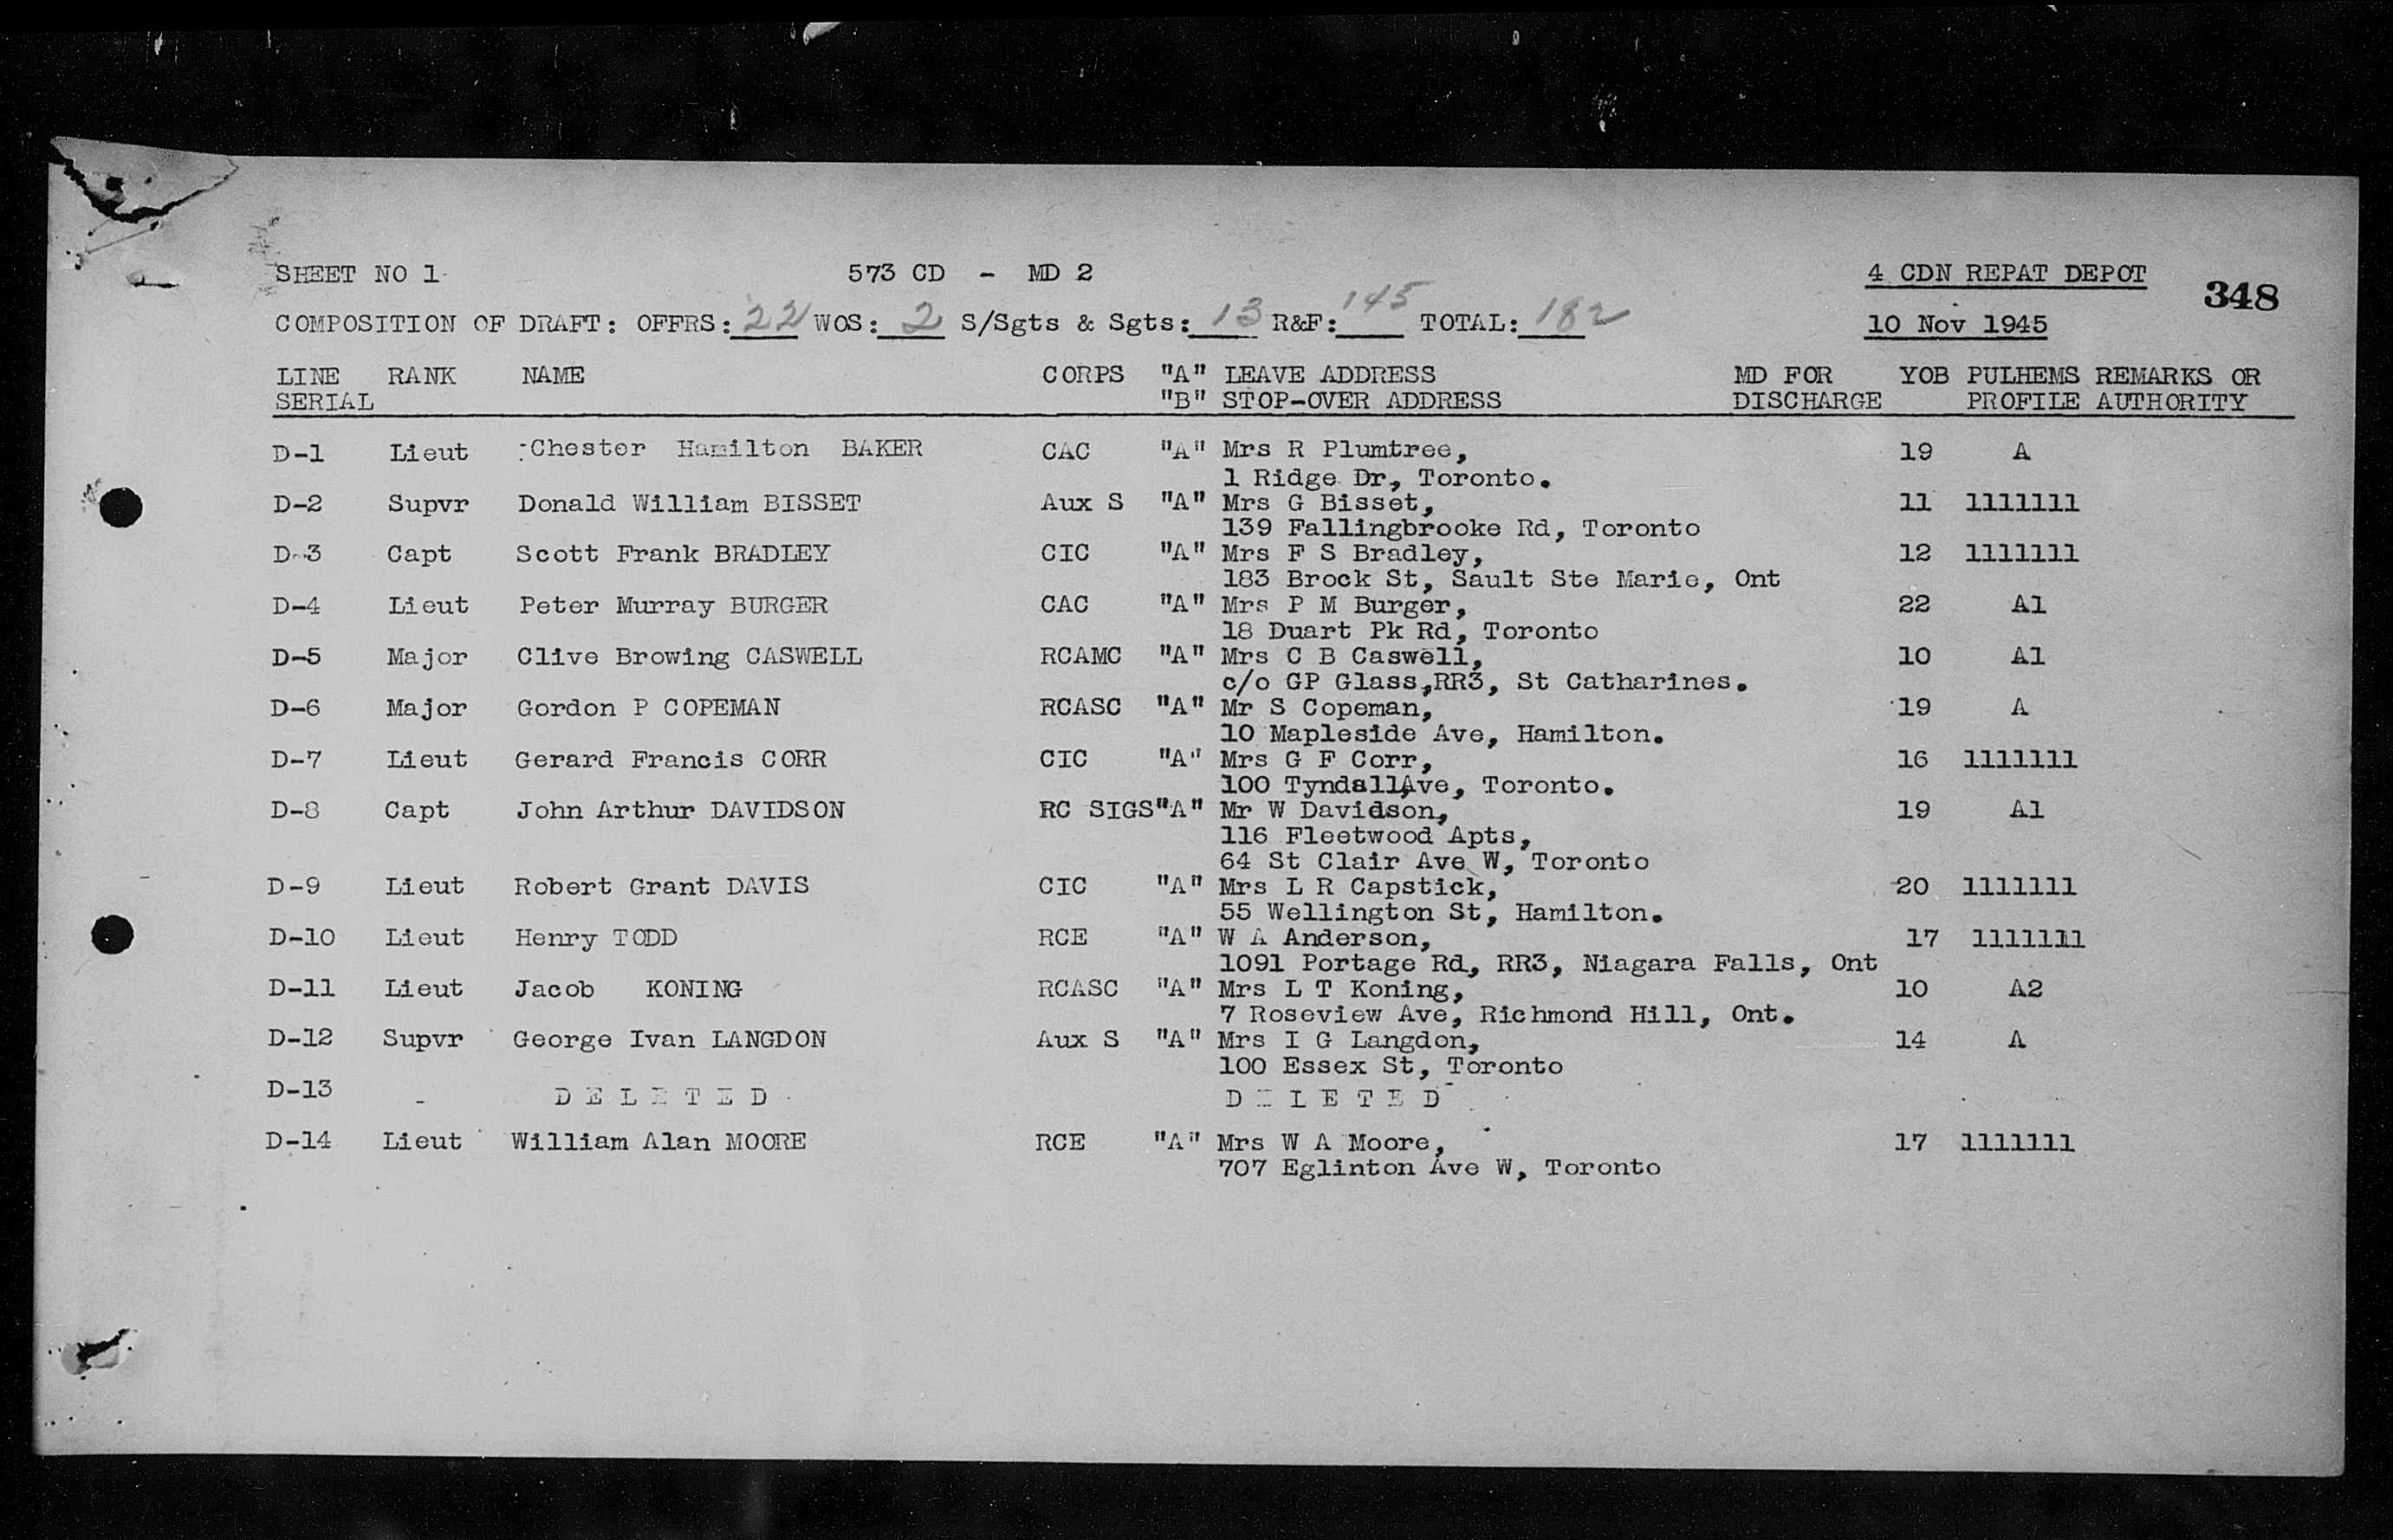 SHEET NO 1 573 CD - MD 2 4 CDN REPAT DEPOT 348
COMPOSITION OF DRAFT: OFFRS: 22 WOS: 2 S/Sgts & Sgts: 13 R&F: 145 TOTAL: 182 10 Nov 1945
LINE RANK NAME CORPS "A" LEAVE ADDRESS MD FOR YOB PULHEMS REMARKS OR
SERIAL "B" STOP-OVER ADDRESS DISCHARGE PROFILE AUTHORITY
D-1 Lieut Chester Hamilton BAKER CAC "A" Mrs R Plumtree, 19 A
1 Ridge Dr, Toronto.
D-2 Supvr Donald William BISSET Aux S "A" Mrs G Bisset, 11 1111111
139 Fallingbrooke Rd, Toronto
D-3 Capt Scott Frank BRADLEY CIC "A" Mrs F S Bradley, 12 1111111
183 Brock St, Sault Ste Marie, Ont
D-4 Lieut Peter Murray BURGER CAC "A" Mrs P M Burger, 22 A1
18 Duart Pk Rd, Toronto
D-5 Major Clive Browing CASWELL RCAMC "A" Mrs C B Caswell, 10 A1
c/o GP Glass,RR3, St Catharines.
D-6 Major Gordon P COPEMAN RCASC "A" Mr S Copeman, 19 A
10 Mapleside Ave, Hamilton.
D-7 Lieut Gerard Francis CORR CIC "A" Mrs G F Corr, 16 1111111
100 Tyndall,Ave, Toronto.
D-8 Capt John Arthur DAVIDSON RC SIGS"A" Mr W Davidson, 19 A1
116 Fleetwood Apts,
64 St Clair Ave W, Toronto
D-9 Lieut Robert Grant DAVIS CIC "A" Mrs L R Capstick, 20 1111111
55 Wellington St, Hamilton.
D-10 Lieut Henry TODD RCE "A" W A Anderson, 17 1111111
1091 Portage Rd, RR3, Niagara Falls, Ont
D-11 Lieut Jacob KONING RCASC "A" Mrs L T Koning, 10 A2
7 Roseview Ave, Richmond Hill, Ont.
D-12 Supvr George Ivan LANGDON Aux S "A" Mrs I G Langdon, 14 A
100 Essex St, Toronto
D-13 - D E L E T E D D E L E T E D
D-14 Lieut William Alan MOORE RCE "A" Mrs W A Moore, 17 1111111
707 Eglinton Ave W, Toronto